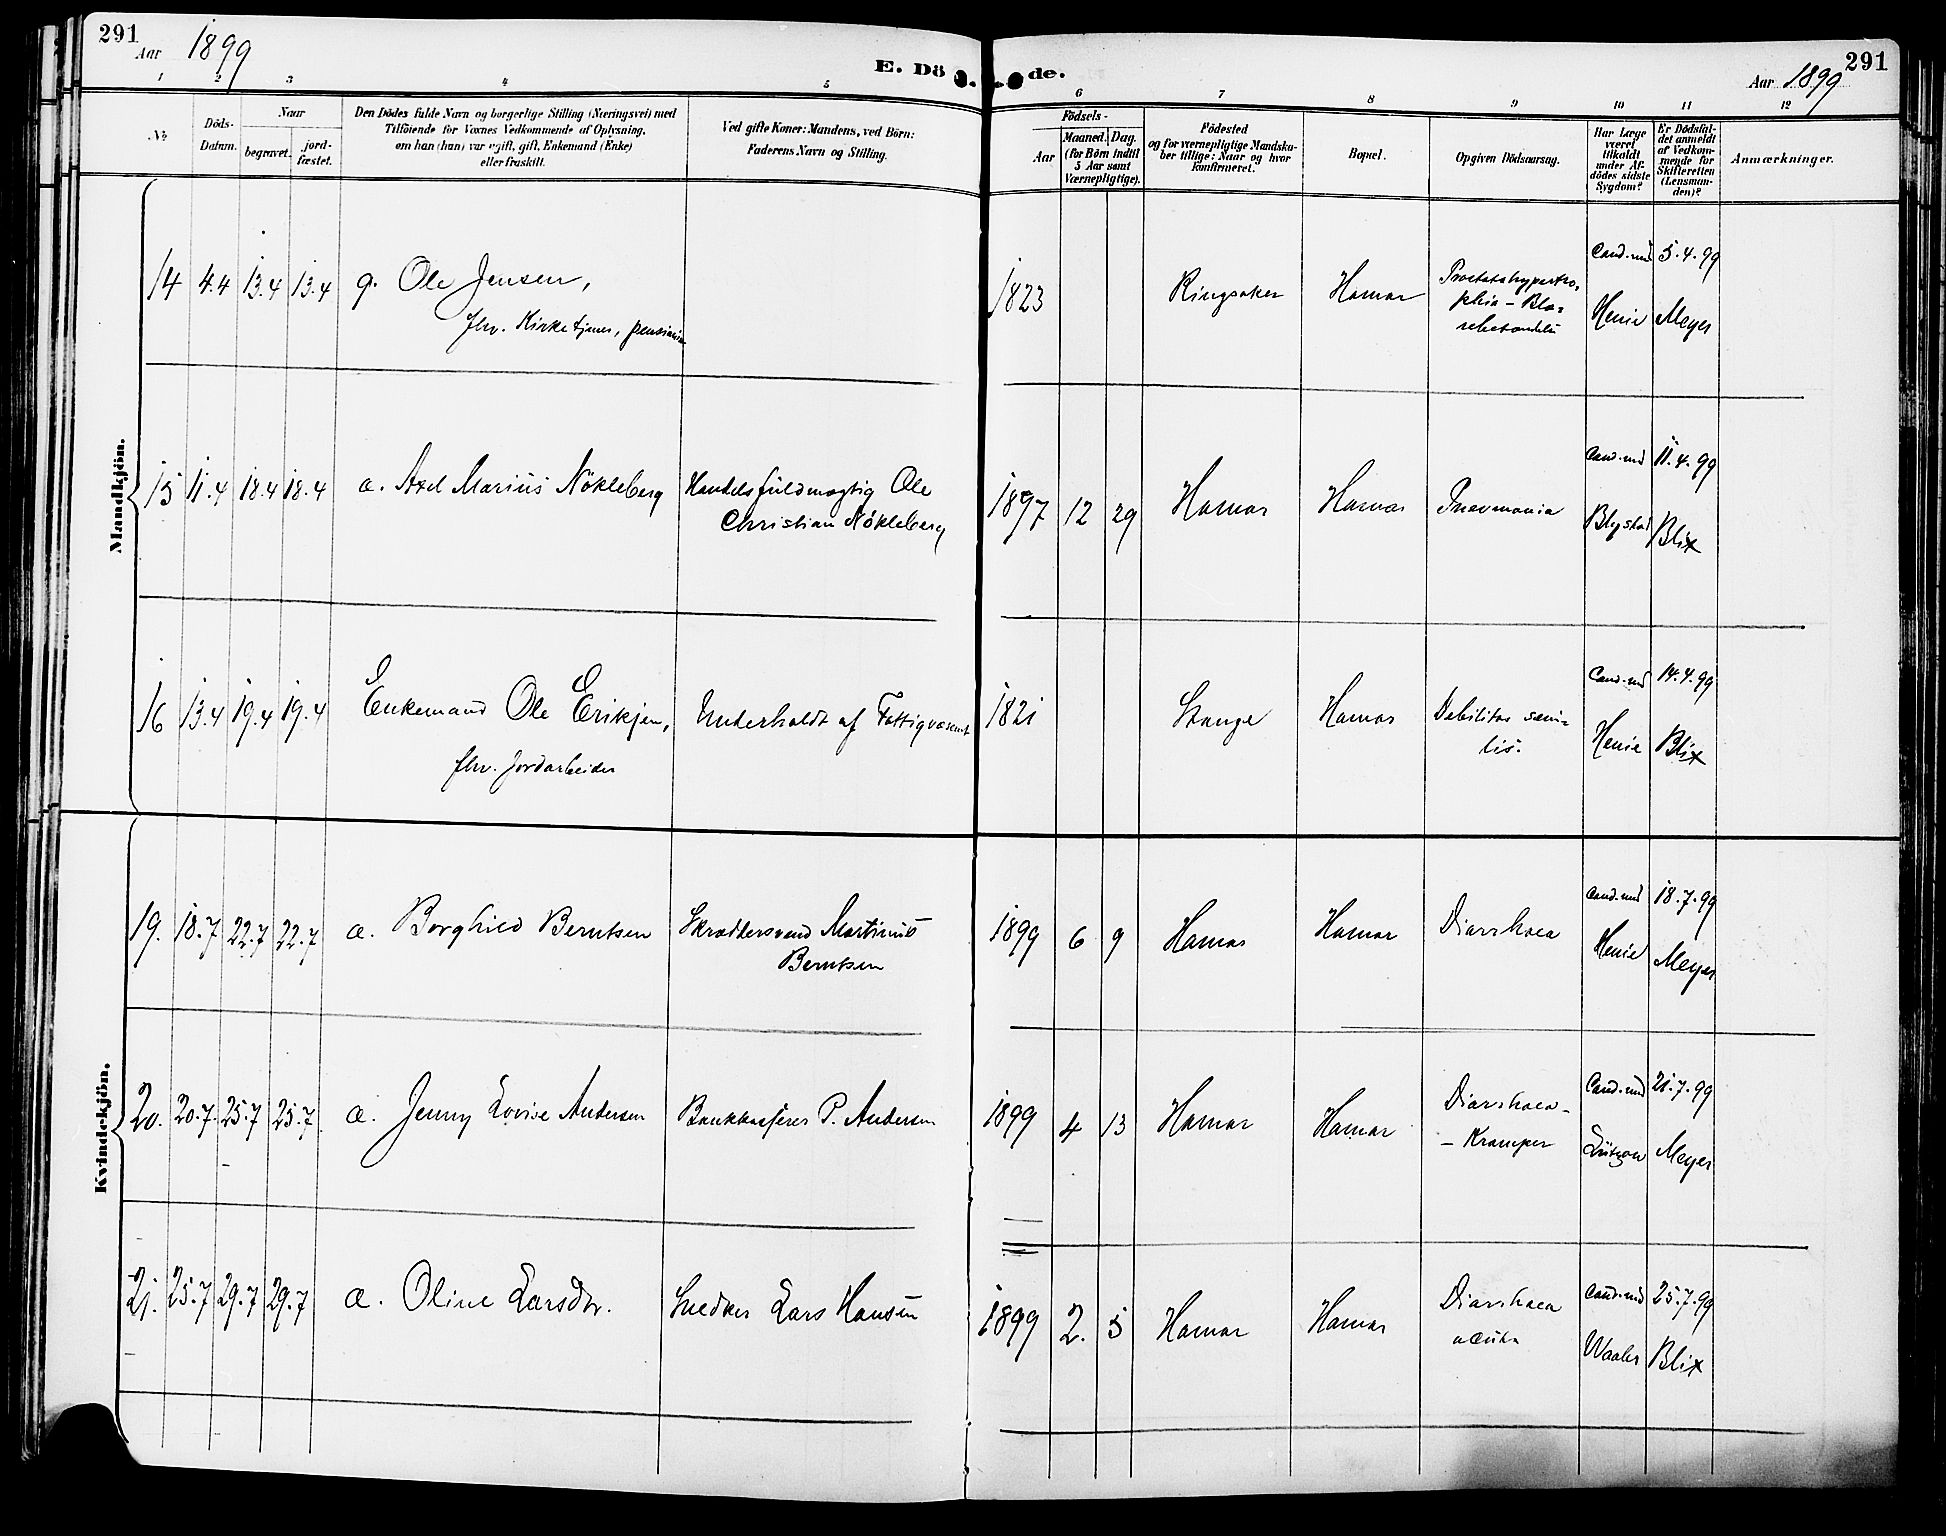 291
Aar 1899
E. Dö de.
Aar 1899
291
1 2 3 4 5 6 7 8 9 10 11 12
No.
Döds-
Datum.
Naar
begravet.
jord-
fæstet.
Den Dödes fulde Navn og borgerlige Stilling (Næringsvei) med
Tilföiende for Voxnes Vedkommende af Oplysning,
om han (hun) var ugift, gift, Enkemand (Enke)
eller fraskilt.
Ved gifte Koner: Mandens, ved Börn:
Faderens Navn og Stilling.
Födsels-
Aar
Maaned. Dag.
(for Börn indtil
5 Aar samt
Værnepligtige).
Födested
og for værnepligtige Mandska-
ber tillige: Naar og hvor
konfirmeret.
Bopæl.
Opgiven Dödsaarsag.
Har Læge
været
tilkaldt
under Af-
dödes sidste
Sygdom?
Er Dödsfal-
det anmeldt
af Vedkom-
mende for
Skifteretten
(Lensman-
den)?
Anmærkninger.
Mandkjön.
14 4.4 13.4 13.4 g. Ole Jensen,
fhv. Kirketjener,
1823 Ringsaker Hamar
Prostatahypertro-
phia - Blæ-
Cand. med Henie
5.4.99 Meyer
15 11.4 18.4 18.4 a. Axel Marius Nökleberg
Handelsfuldmægtig Ole
Christian Nökleberg
1897 12 29 Hamar Hamar Pnevmonia
Cand. med Blystad
11.4.99 Blix
16 13.4 19.4 19.4 Enkemand Ole Eriksen,
fhv. Jordarbeider
Underholdt af Fattigvæsenet
1821 Stange Hamar
Debilitas seni-
lis.
Cand. med Henie
14.4.99 Blix
Kvindekjön.
19. 18.7 22.7 22.7 a. Borghild Berntsen
Skræddersvend Martinius
Berntsen
1899 6 9 Hamar Hamar Diarrhoea
Cand. med Henie
18.7.99 Meyer
20. 20.7 25.7 25.7 a. Jenny Lovise Andersen
Bankkasserer P. Andersen
1899 4 13 Hamar Hamar
Diarrhoea -
- Kramper
Cand. med Lützow
21.7.99 Meyer
21. 25.7 29.7 29.7 a. Oline Larsdtr.
Snedker Lars Hansen
1899 2. 5 Hamar Hamar
Diarrhoea
acuta
Cand. med Waaler
25.7.99 Blix